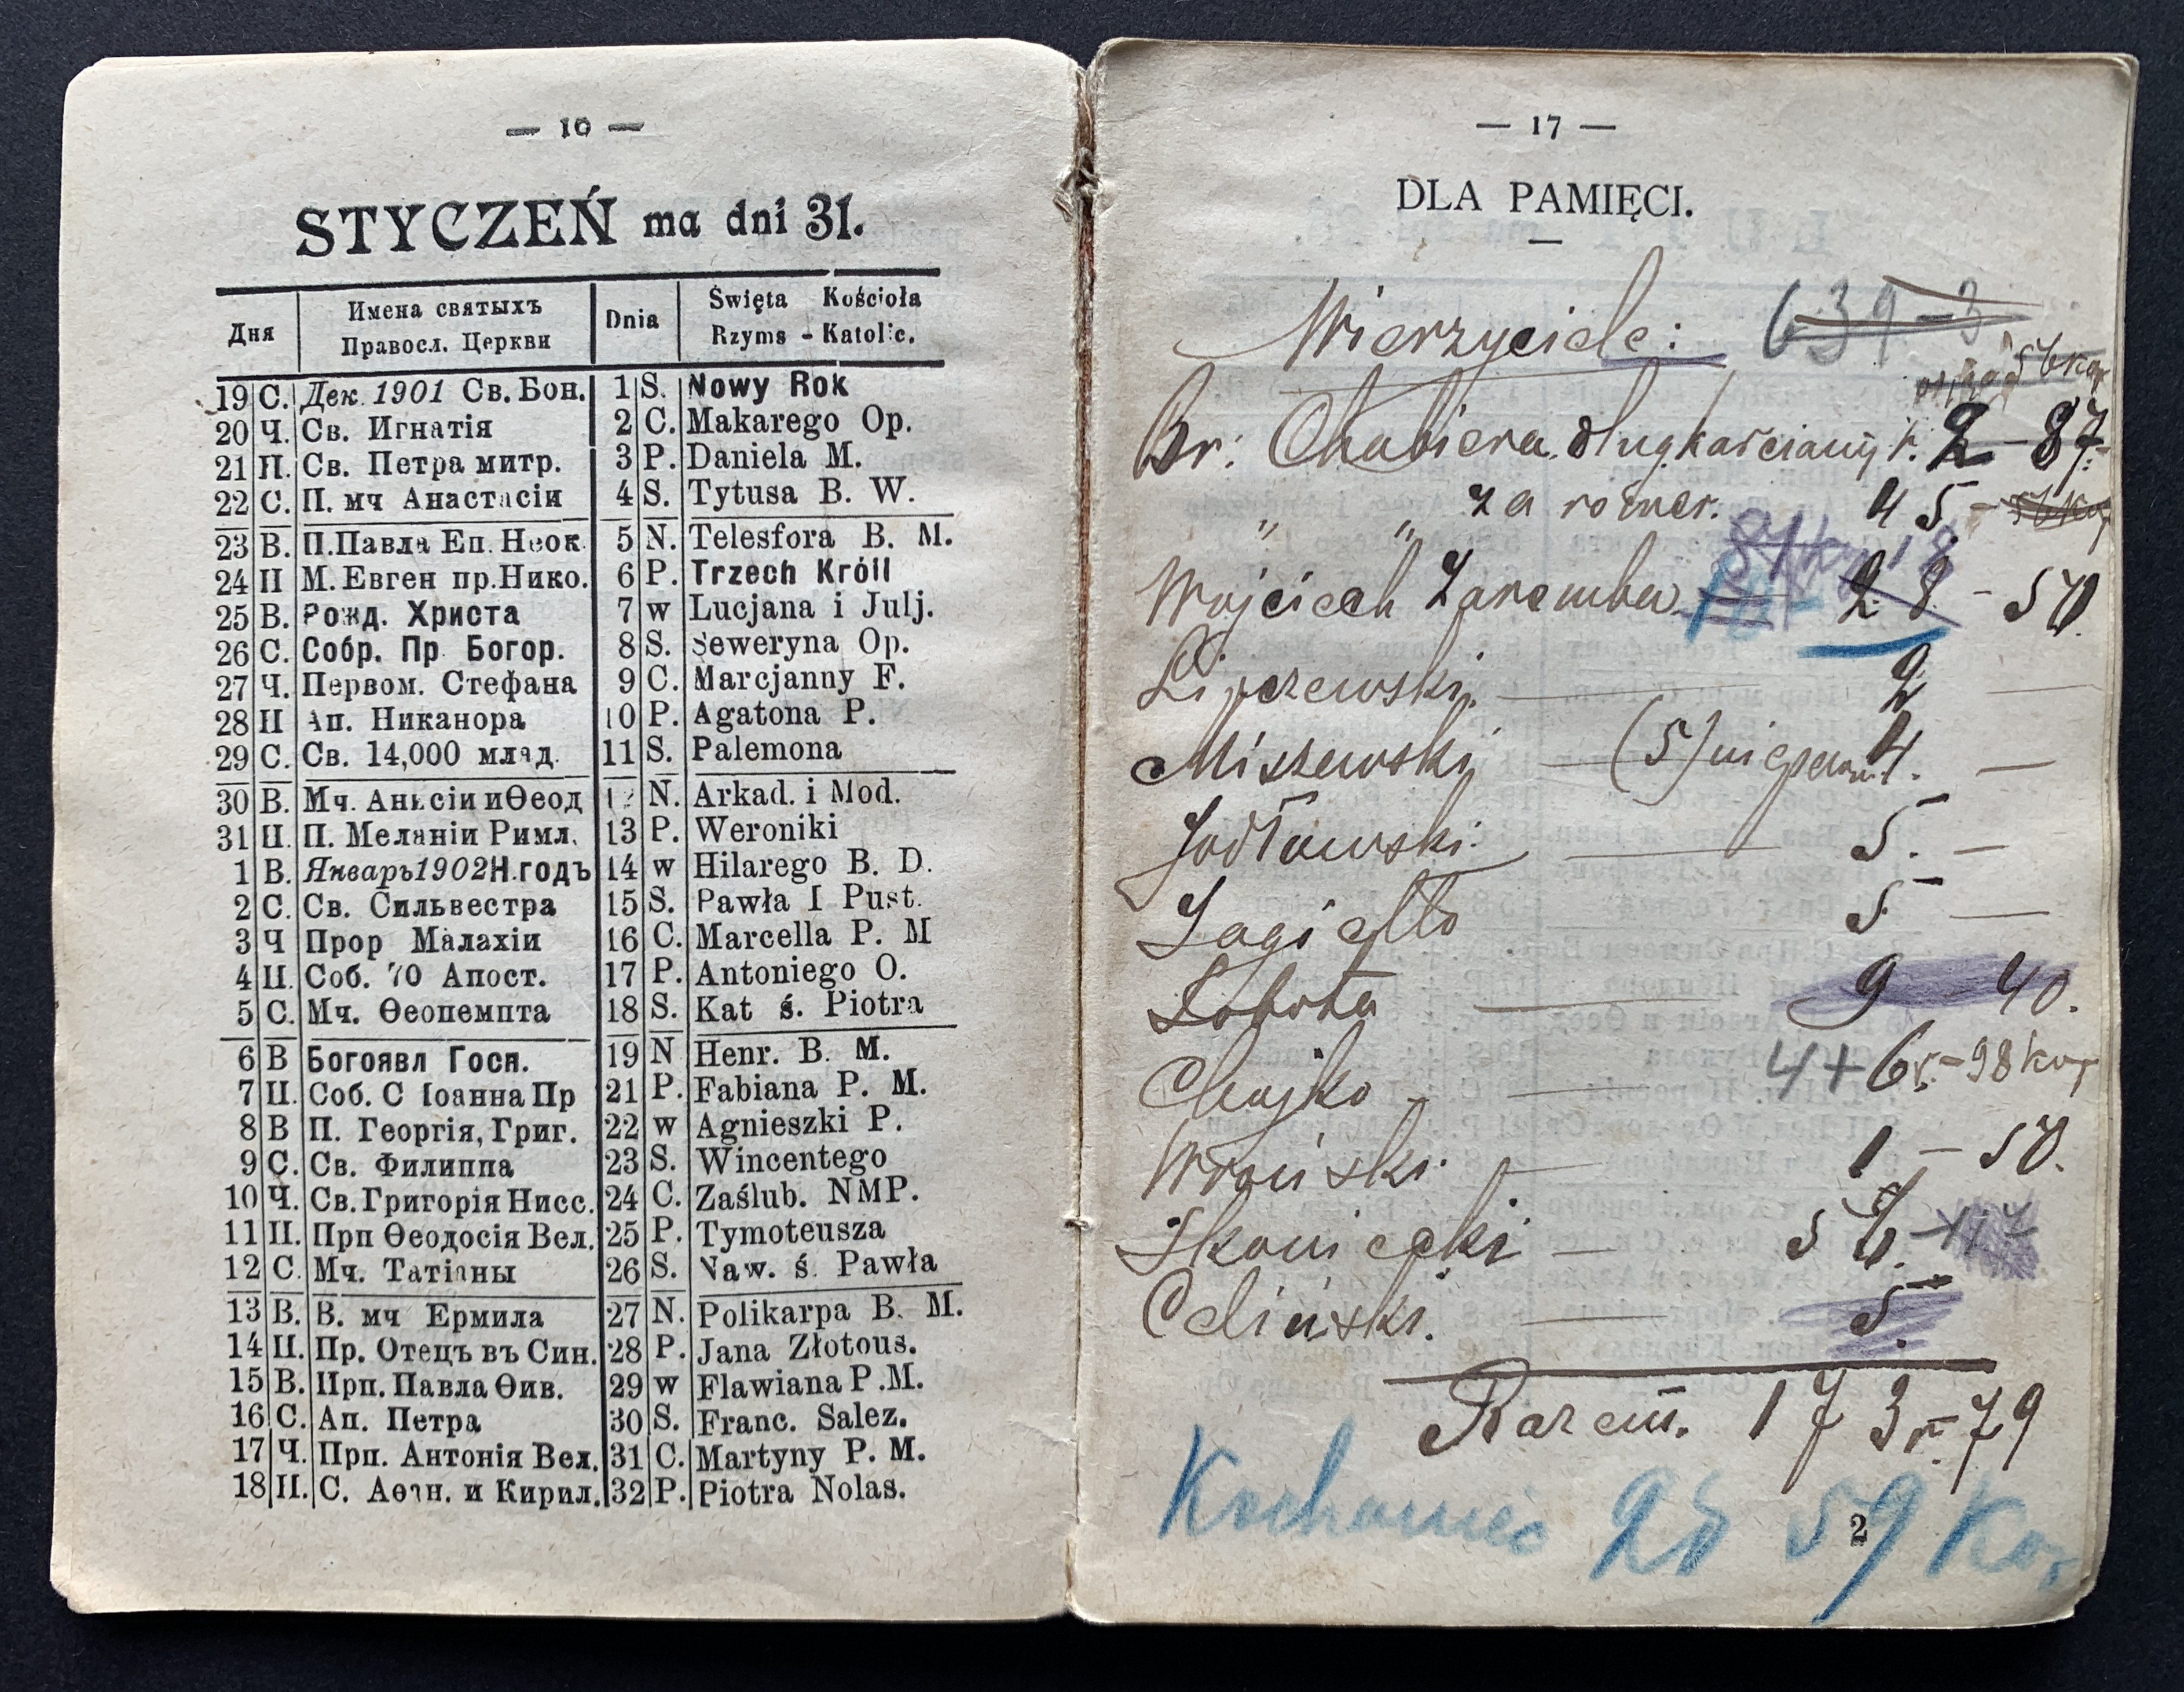 — 10 —
STYCZEŃ ma dni 31.
Дня Имена святыхъ Правосл. Церкви Dnia Święta Kościoła Rzyms - Katolic.
19 С. Дек. 1901 Св. Бон. 1 S. Nowy Rok
20 Ч. Св. Игнатія 2 C. Makarego Op.
21 П. Св. Петра митр. 3 P. Daniela M.
22 С. П. мч Анастасіи 4 S. Tytusa B. W.
23 В. П.Павла Еп. Неок. 5 N. Telesfora B. M.
24 П М. Евген пр.Нико. 6 P. Trzech Króli
25 В. Рожд. Христа 7 w Lucjana i Julj.
26 С. Собр. Пр Богор. 8 S. Seweryna Op.
27 Ч. Первом. Стефана 9 C. Marcjanny F.
28 П Ап. Никанора 10 P. Agatona P.
29 С. Св. 14,000 млад. 11 S. Palemona
30 В. Мч. Анисіи и Ѳеод 12 N. Arkad. i Mod.
31 П. П. Меланіи Римл. 13 P. Weroniki
1 В. Январь 1902 Н.годъ 14 w Hilarego B. D.
2 С. Св. Сильвестра 15 S. Pawła I Pust.
3 Ч Прор Малахіи 16 C. Marcella P. M
4 П. Соб. 70 Апост. 17 P. Antoniego O.
5 С. Мч. Ѳеопемпта 18 S. Kat ś. Piotra
6 В Богоявл Госп. 19 N Henr. B. M.
7 П. Соб. С Іоанна Пр 21 P. Fabiana P. M.
8 В П. Георгія, Григ. 22 w Agnieszki P.
9 С. Св. Филиппа 23 S. Wincentego
10 Ч. Св. Григорія Нисс. 24 C. Zaślub. NMP.
11 П. Прп Ѳеодосія Вел. 25 P. Tymoteusza
12 С. Мч. Татіаны 26 S. Naw. ś. Pawła
13 В. В. мч Ермила 27 N. Polikarpa B. M.
14 П. Пр. Отецъ въ Син. 28 P. Jana Złotous.
15 В. Прп. Павла Ѳив. 29 w Flawiana P.M.
16 С. Ап. Петра 30 S. Franc. Salez.
17 Ч. Прп. Антонія Вел. 31 C. Martyny P. M.
18 П. С. Аѳан. и Кирил. 32 P. Piotra Nolas.
— 17 —
DLA PAMIĘCI.
Wierzyciele: 639-3
56 kop
Br: Chabiera dług karciany r. 2 - 87.
" " za rower. 45 -
Wojciech Zaremba 28 - 50.
Lipczewski. — 2 —
Miszewski — (5) 4. —
Jodłowski. — 5. —
Jagiełło 5 —
Sobota — 9 - 40.
Chojko — 4 + 6 r. - 98 kop
Wroński. — 1 - 50.
Skoniecki — 56. -
Celiński. — 5.
Razem. 173 r - 79
Kochaniec 28 59 Kop.
2